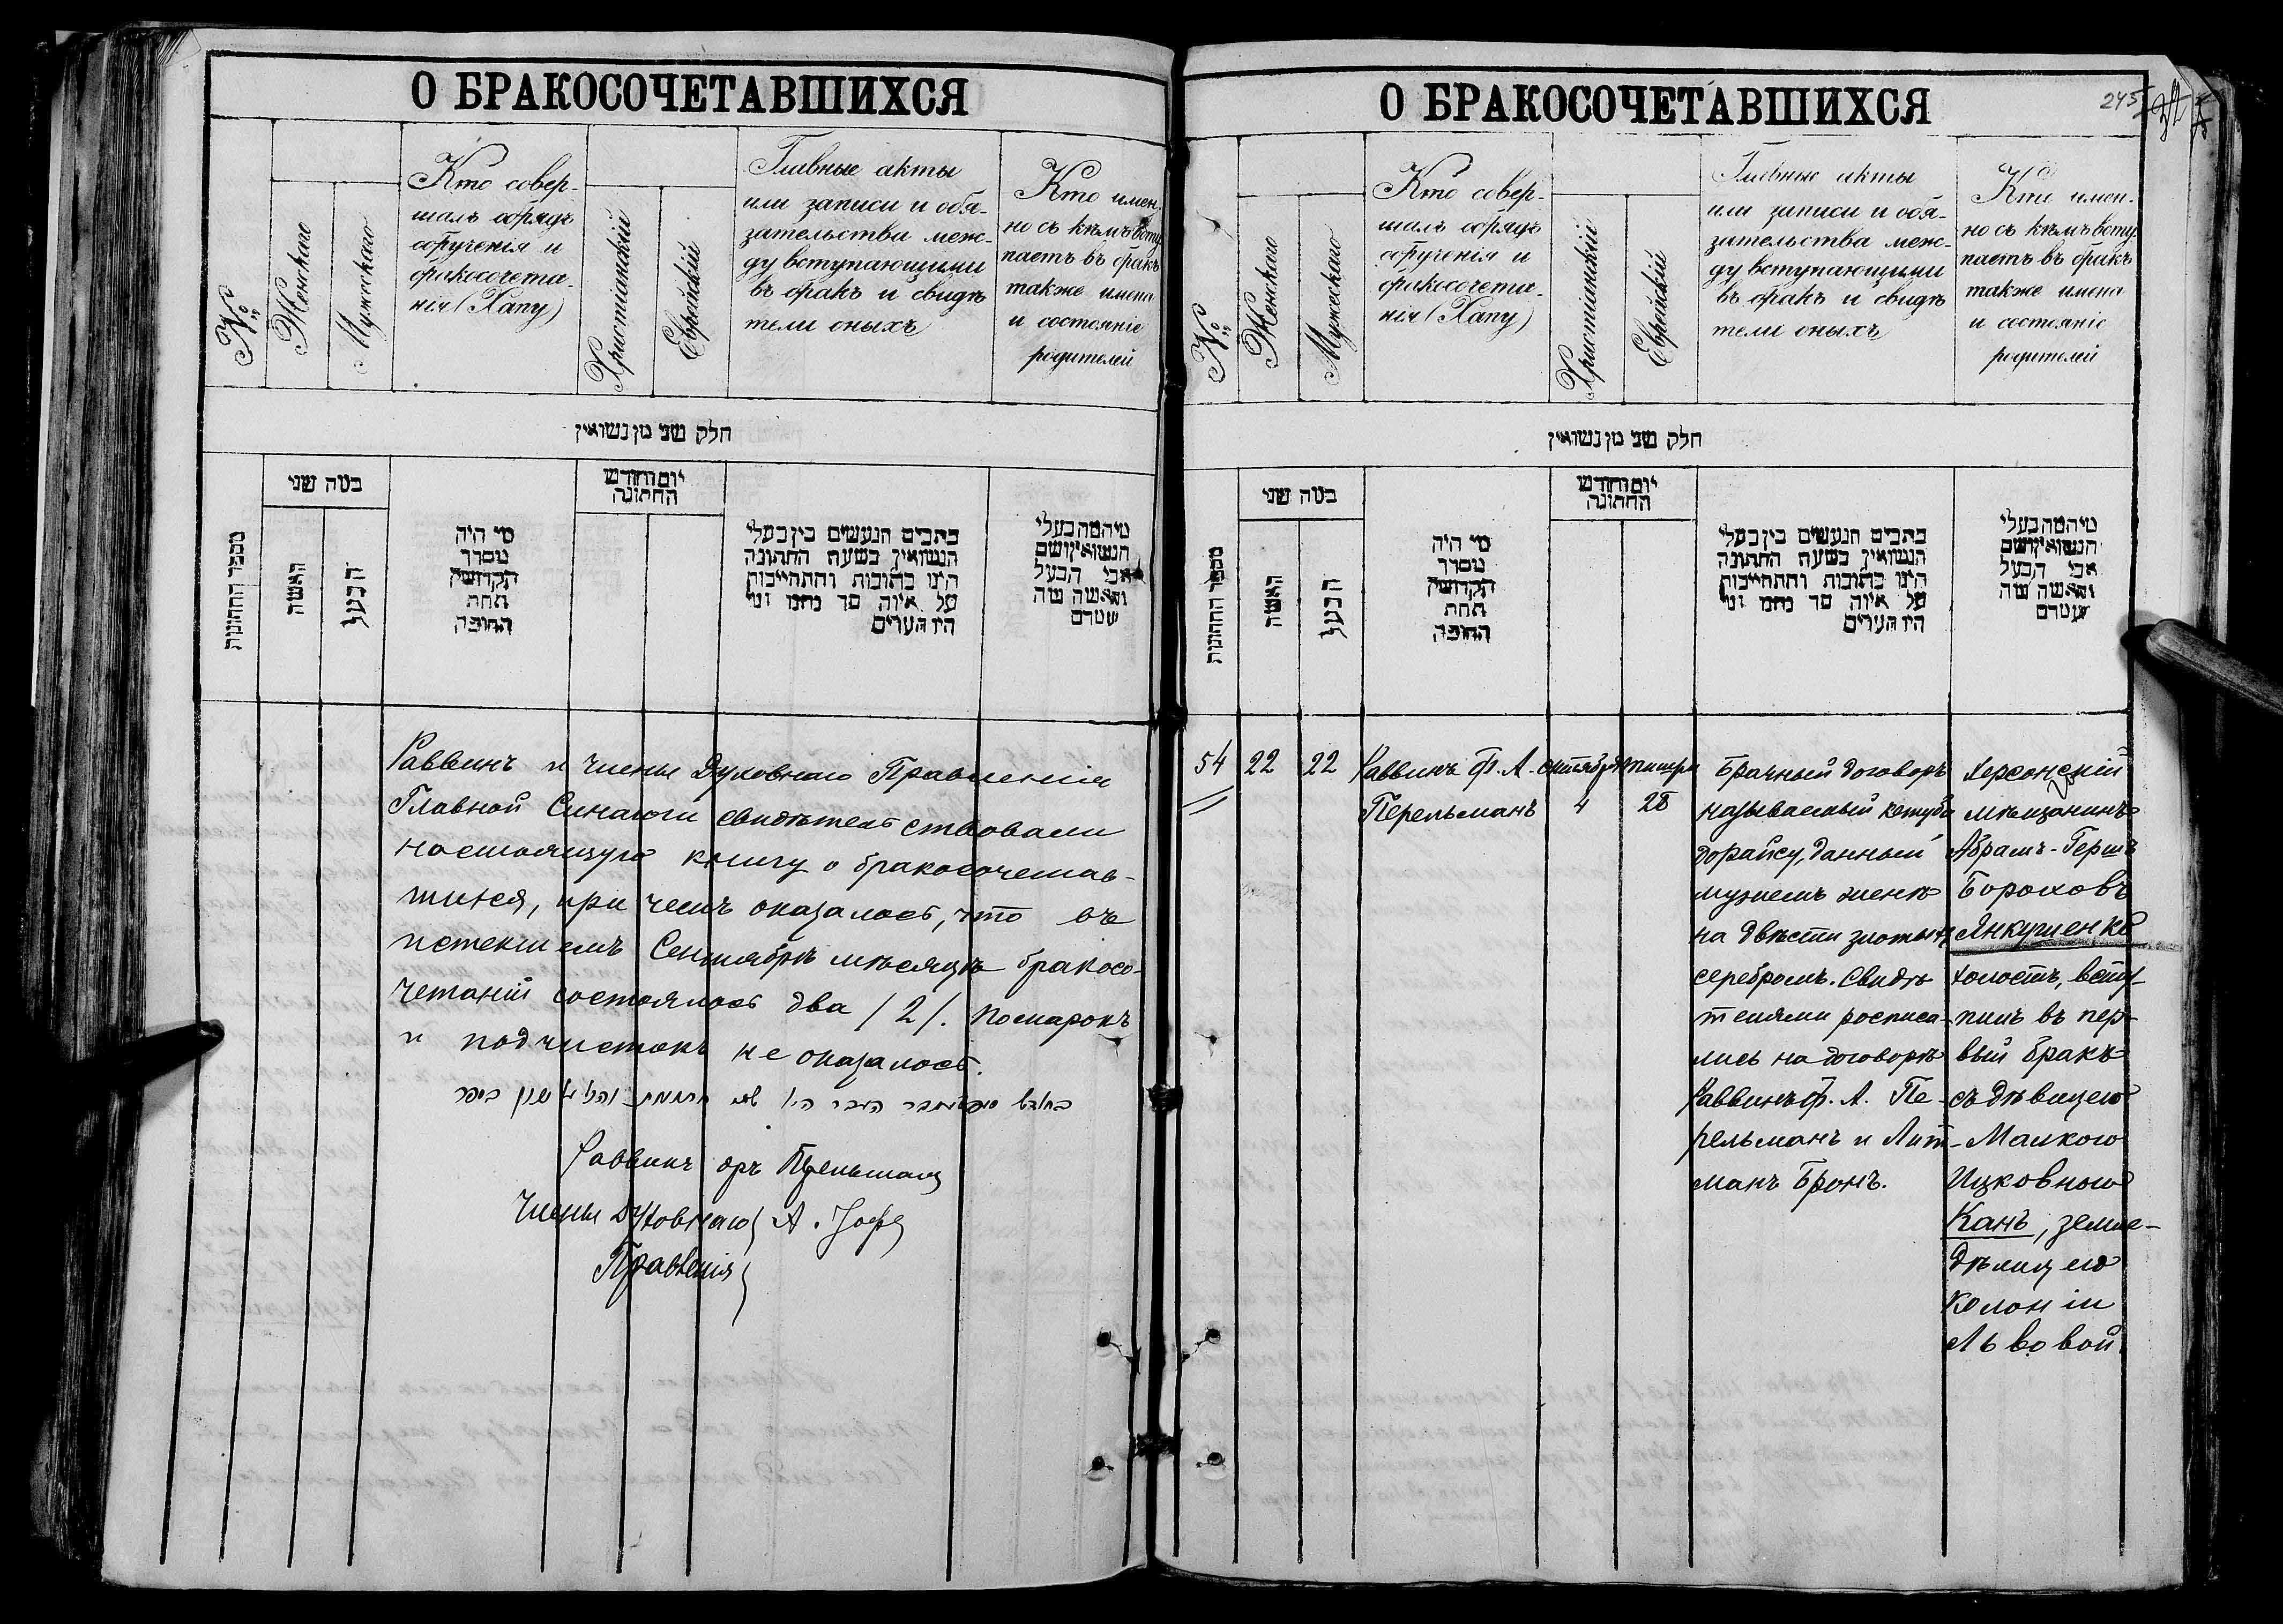 О БРАКОСОЧЕТАВШИХСЯ
№
Женскаго
Мужескаго
Кто совер-
шалъ обрядъ
обрученія и
бракосочета-
нія (Хапу)
Христіанскій
Еврейскій
Главные акты
или записи и обя-
зательства меж-
ду вступающими
въ бракъ и свидѣ
тели оныхъ
Кто имен-
но съ кѣмъ всту
паетъ въ бракъ
также имена
и состояніе
родителей
חלק שני מן נשואין
מספר החתונות
כמה שני
האשה
הבעל
מי היה
מסדר
הקדושין
תחת
החופה
יום וחודש
החתונה
כתבים הנעשים בין בעלי
הנשואין בשעת החתונה
היינו כתובות והתחייבות
על איזה סך נתנו ומי
היו העדים
מי המה בעלי
הנשואין ושם
אבי הבעל
והאשה ומה
שמרם
Раввинъ и Члены Духовнаго Правленія
Главной Синагоги свидѣтельствовали
настоящую книгу о бракосочетав-
шихся, при чемъ оказалось, что въ
истекшемъ Сентябрѣ мѣсяцѣ бракосо-
четаній состоялось два /2/. Помарокъ
и подчистокъ не оказалось.
Раввинъ Ф Перельманъ
Члены Духовнаго А. Іофе
Правленія
О БРАКОСОЧЕТАВШИХСЯ
245
№
Женскаго
Мужескаго
Кто совер-
шалъ обрядъ
обрученія и
бракосочета-
нія (Хапу)
Христіанскій
Еврейскій
Главные акты
или записи и обя-
зательства меж-
ду вступающими
въ бракъ и свидѣ
тели оныхъ
Кто имен-
но съ кѣмъ всту
паетъ въ бракъ
также имена
и состояніе
родителей
חלק שני מן נשואין
מספר החתונות
כמה שני
האשה
הבעל
מי היה
מסדר
הקדושין
תחת
החופה
יום וחודש
החתונה
כתבים הנעשים בין בעלי
הנשואין בשעת החתונה
היינו כתובות והתחייבות
על איזה סך נתנו ומי
היו העדים
מי המה בעלי
הנשואין ושם
אבי הבעל
והאשה ומה
שמרם
54
22
22
Раввинъ Ф. А.
Перельманъ
Октября
4
Тишри
28
Брачный договоръ
называемый кетуба
дорайсу, данный
мужемъ женѣ
на двѣсти злотыхъ
серебромъ. Свидѣ
телями росписа-
лись на договорѣ
Раввинъ Ф. А. Пе-
рельманъ и Лит-
манъ Бронъ.
Херсонскій
мѣщанинъ
Абрамъ-Гершъ
Бороховъ
Янкушенко
холостъ, всту-
пилъ въ пер-
вый бракъ
съ дѣвицею
Малкою
Ицковною
Канъ, земле-
дѣлицею
Колоніи
Львовой.